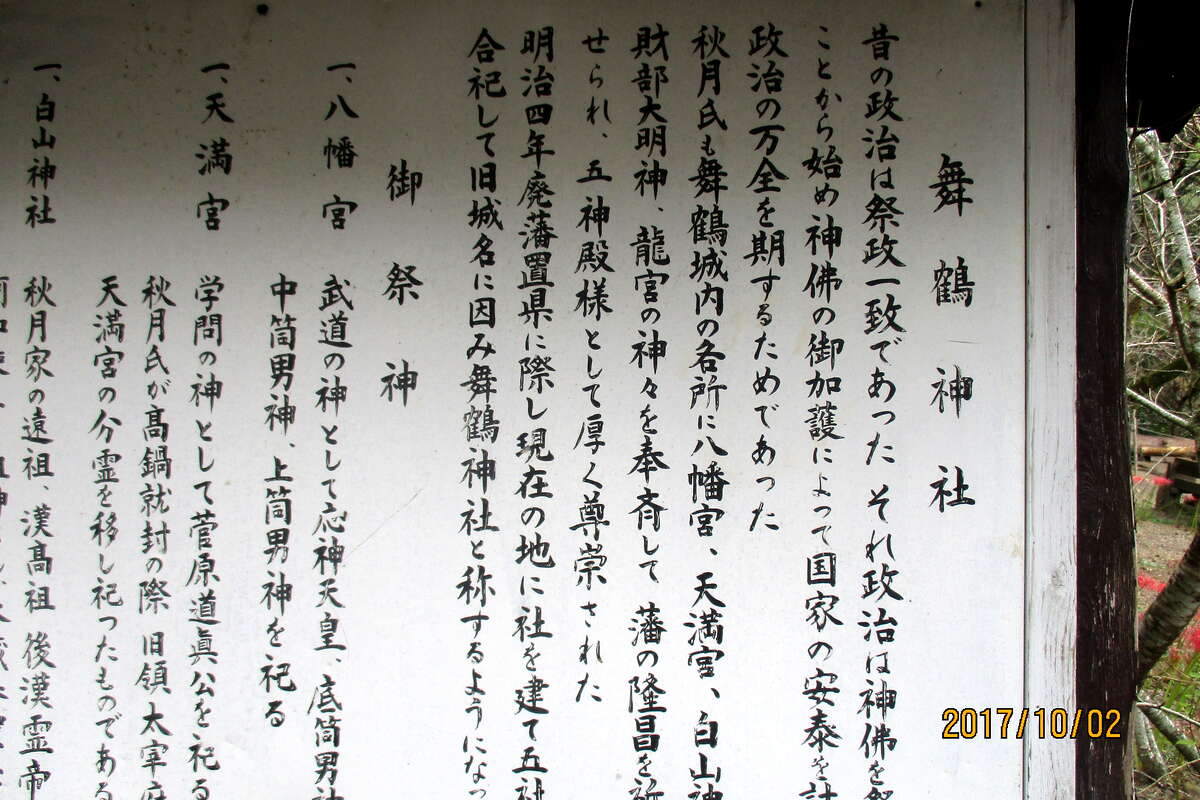 舞鶴神社
昔の政治は祭政一致であった それ政治は神佛を祭
ことから始め神佛の御加護によって国家の安泰を計
政治の万全を期するためであった
秋月氏も舞鶴城内の名所に八幡宮、天満宮、白山神
財部大明神、龍宮の神々を奉斉して 藩の隆昌を祈
せられ、五神殿様として厚く尊崇された
明治四年廃藩置県に際し現在の地に社を建て五社
合祀して旧城名に因み舞鶴神社と称するようになっ
御祭神
一、八幡宮 武道の神として応神天皇、底筒男神
中筒男神、上筒男神を祀る
一、天満宮 学問の神として菅原道眞公を祀る
秋月氏が高鍋就封の際 旧領 太宰府
天満宮の分霊を移し祀ったものである
一、白山神社 秋月家の遠祖、漢高祖 後漢霊帝